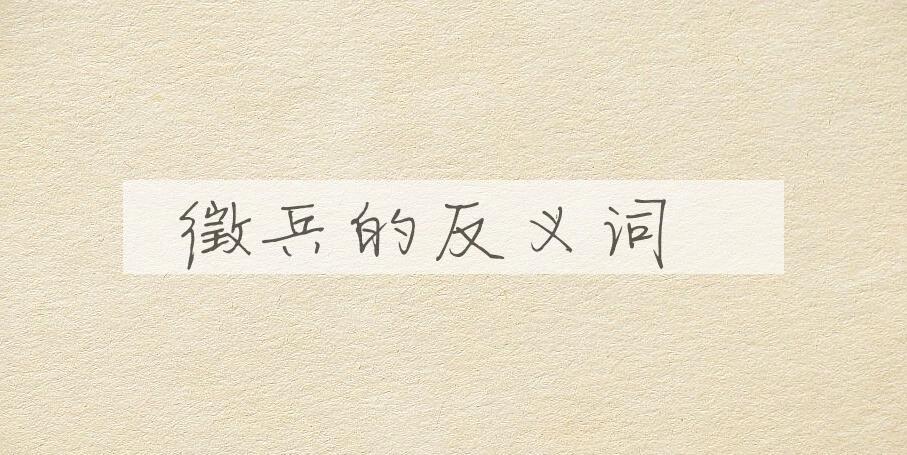 徵兵的反义词